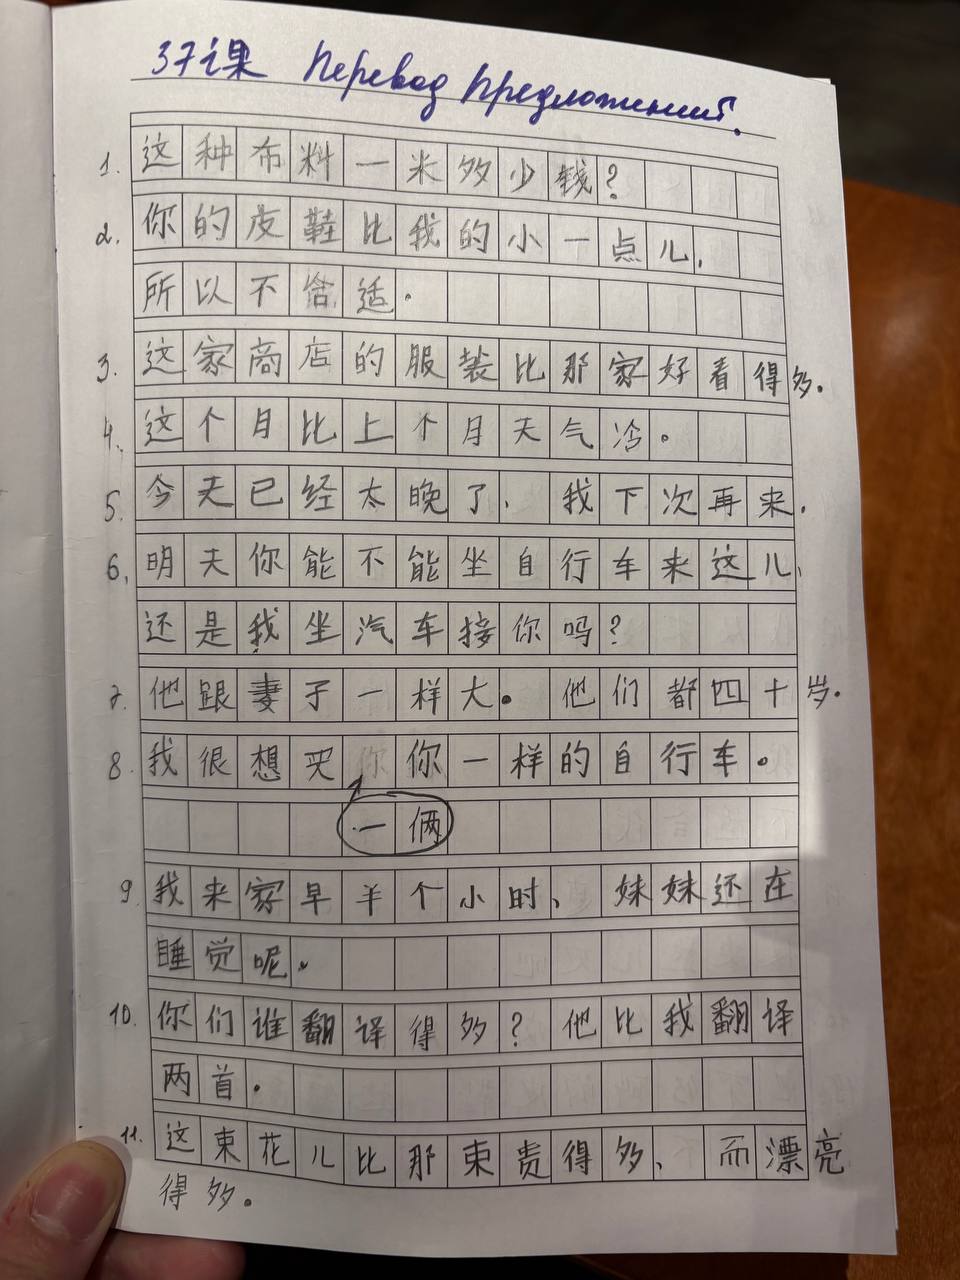 37课 Перевод предложений.
1. 这种布料一米多少钱?
2. 你的皮鞋比我的小一点儿,
所以不合适。
3. 这家商店的服装比那家好看得多.
4. 这个月比上个月天气冷。
5. 今天已经太晚了、我下次再来.
6. 明天你能不能坐自行车来这儿、
还是我坐汽车接你吗?
7. 他跟妻子一样大。他们都四十岁.
8. 我很想买你一样的自行车。
一俩
9. 我来家早半个小时、妹妹还在
睡觉呢.
10. 你们谁翻译得多? 他比我翻译
两首.
11. 这束花儿比那束贵得多、而漂亮
得多.